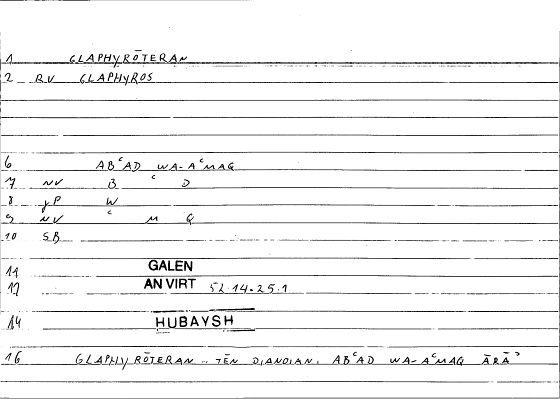 1 GLAPHYRŌTERAN
2 RV GLAPHYROS
6 ABᶜAD WA-AᶜMAQ
7 NV B ᶜ D
8 γP W
9 NV ᶜ M Q
10 SB
11 GALEN
12 AN VIRT 52.14-25.1
14 HUBAYSH
16 GLAPHYRŌTERAN .. TĒN DIANOIAN: ABᶜAD WA-AᶜMAQ ĀRĀʾ